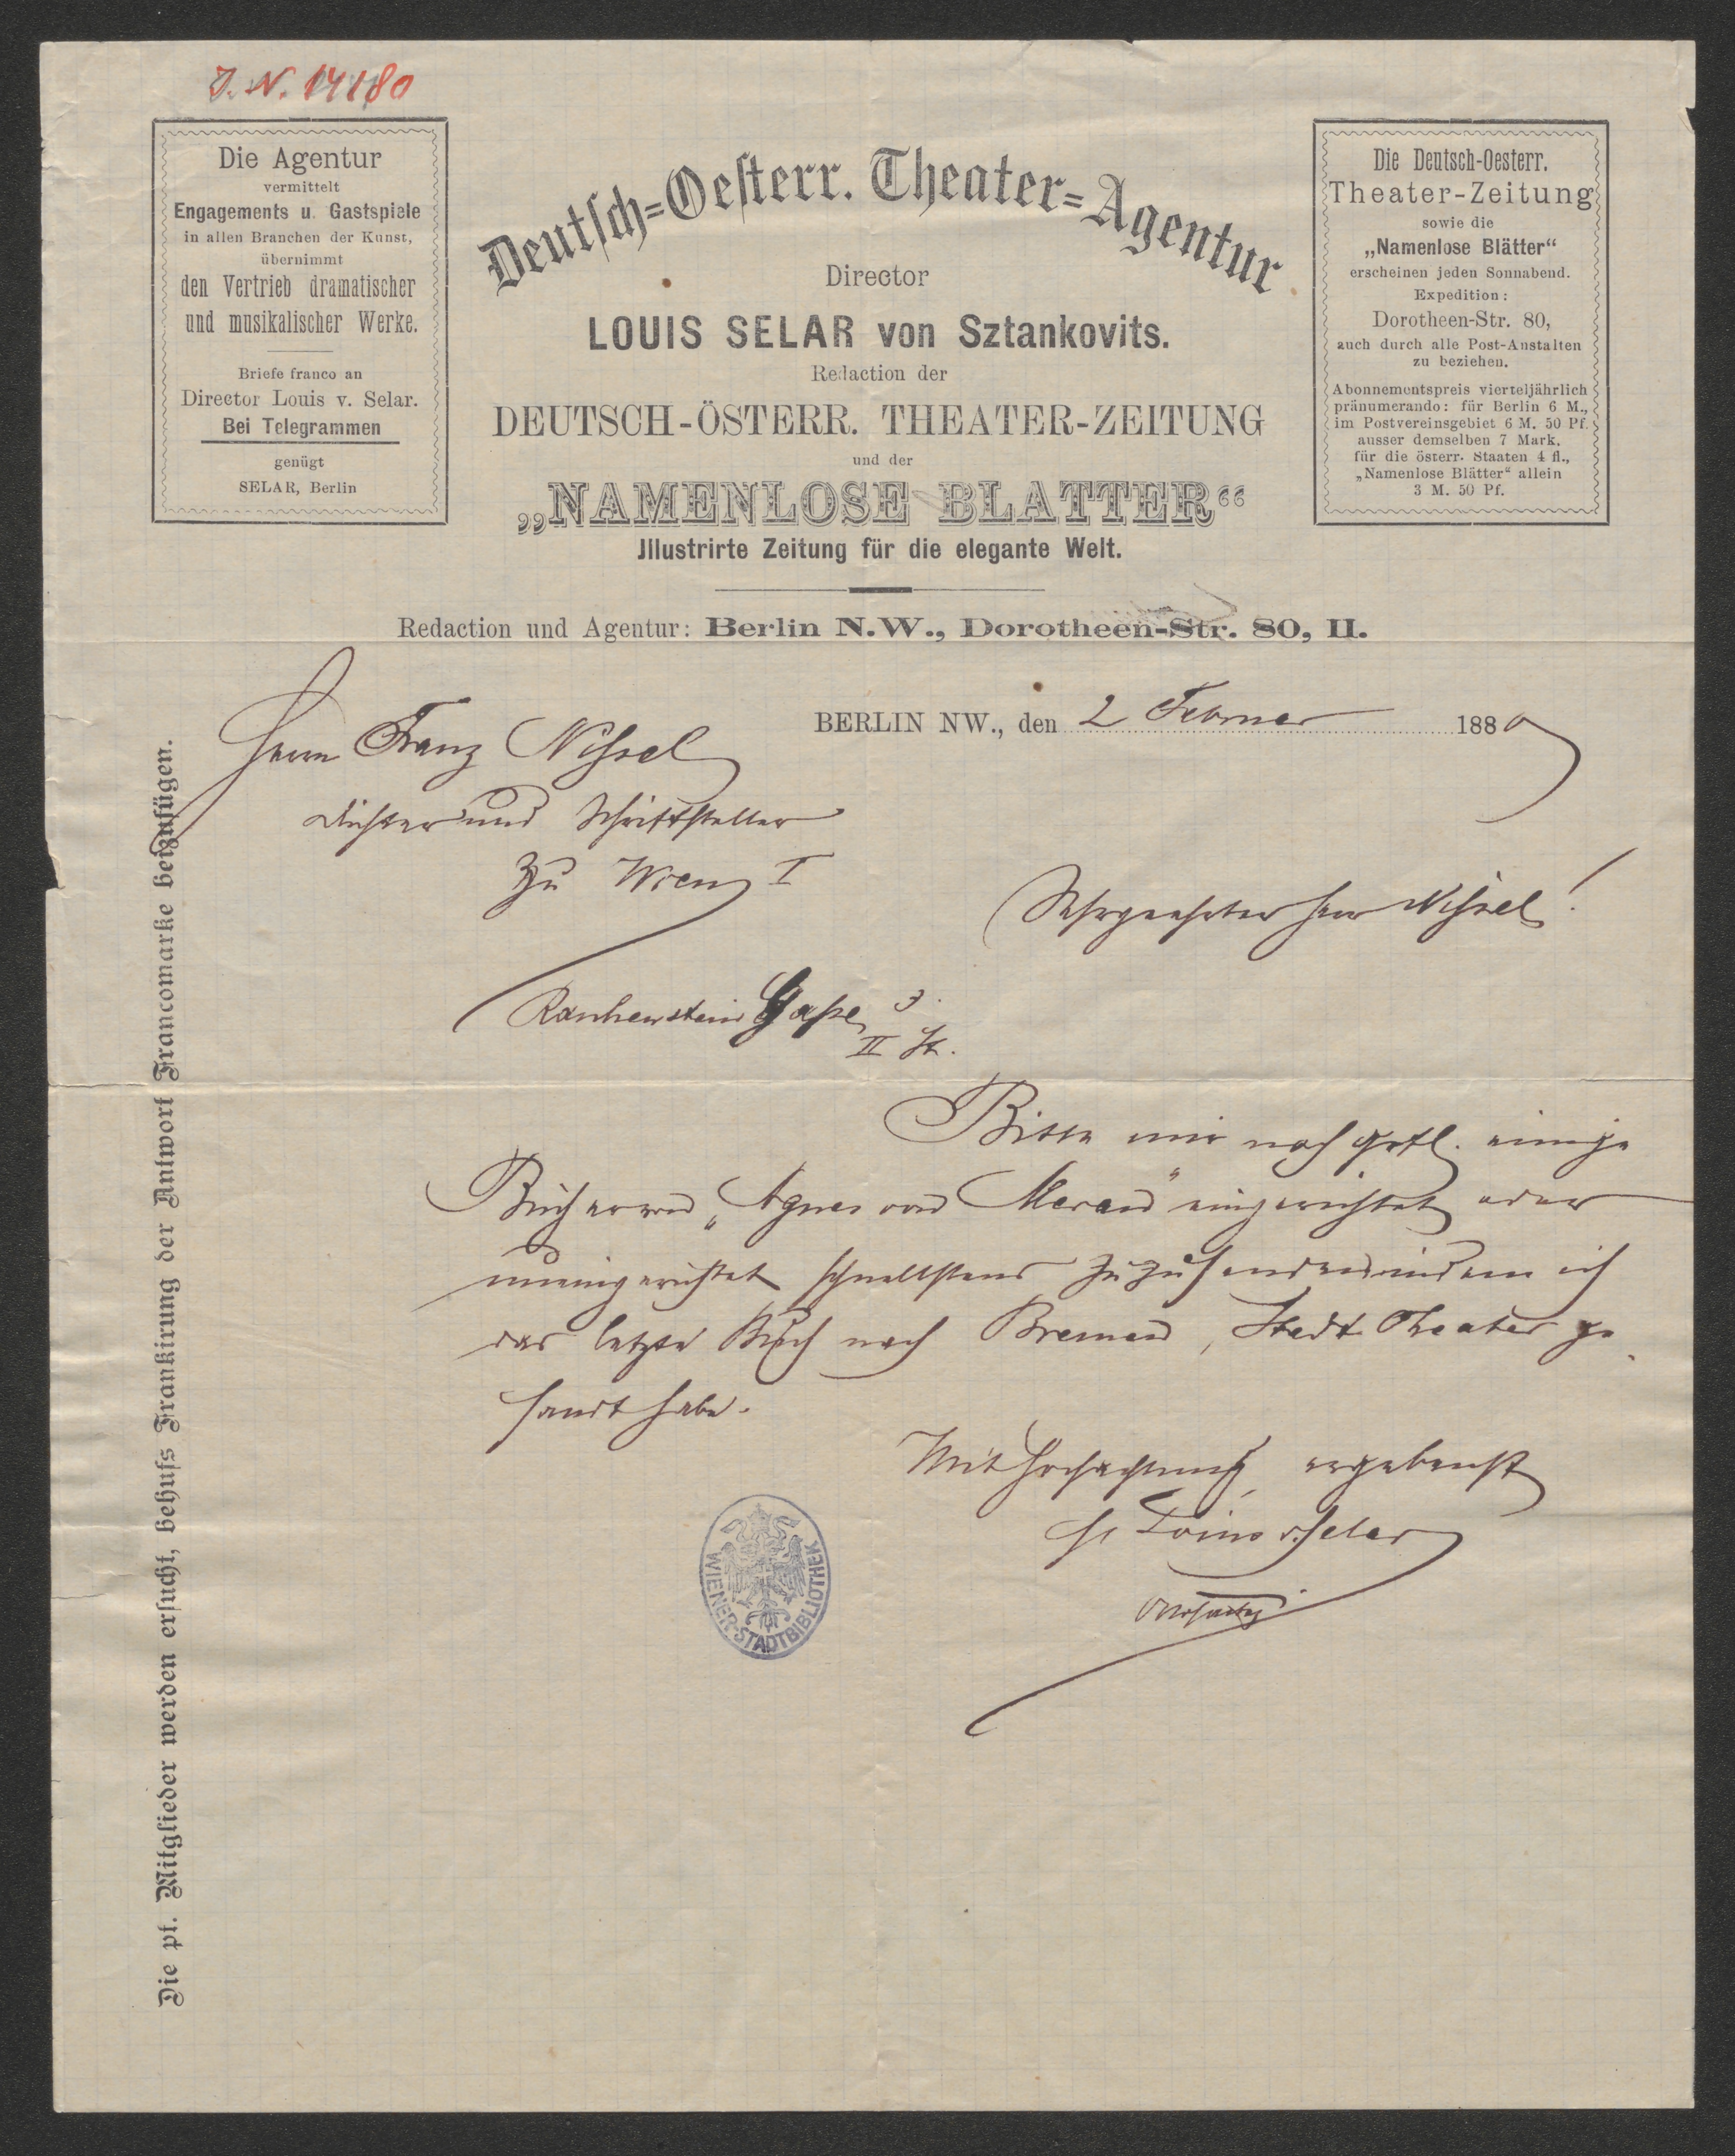 J. N. 14180
Die Agentur
vermittelt
Engagements u. Gastspiele
in allen Branchen der Kunst,
übernimmt
den Vertrieb dramatischer
und musikalischer Werke.
Briefe franco an
Director Louis v. Selar.
Bei Telegrammen
genügt
SELAR, Berlin
Deutsch=Oesterr. Theater=Agentur
Director
LOUIS SELAR von Sztankovits.
Redaction der
DEUTSCH-ÖSTERR. THEATER-ZEITUNG
und der
„NAMENLOSE BLATTER“
Jllustrirte Zeitung für die elegante Welt.
Redaction und Agentur: Berlin N.W., Dorotheen-Str. 80, II.
Die Deutsch-Oesterr.
Theater-Zeitung
sowie die
„Namenlose Blätter“
erscheinen jeden Sonnabend.
Expedition:
Dorotheen-Str. 80,
auch durch alle Post-Anstalten
zu beziehen.
Abonnementspreis vierteljährlich
pränumerando: für Berlin 6 M.,
im Postvereinsgebiet 6 M. 50 Pf.
ausser demselben 7 Mark.
für die österr. Staaten 4 fl.,
„Namenlose Blätter“ allein
3 M. 50 Pf.
BERLIN NW., den 2 Februar 1880
Herrn Franz Nissel
Dichter und Schriftsteller
zu Wien I
Sehrgeehrter Herr Nissel!
Rauhenstein Gasse 3.
II St.
Bitte mir noch gfll. einige
Bücher von „Agnes von Meran“ eingerichtet oder
uneingerichtet schnellstens zuzusenden indem ich
das letzte Buch nach Bremen, Stadt Theater ge
sandt habe.
Mit Hochachtung ergebenst
Louis v. Selar
WIENER STADTBIBLIOTHEK
Die pt. Mitglieder werden ersucht, behufs Frankirung der Antwort Francomarke beizufügen.